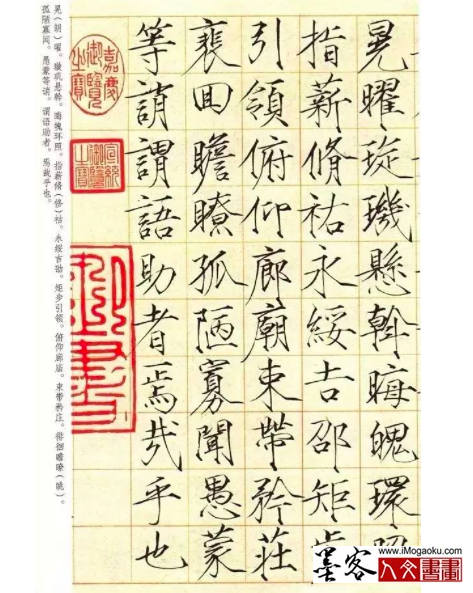 晃曜琁璣懸斡晦魄環照
指薪脩祜永綏吉邵矩步
引領俯仰廊廟束帶矜莊
裵回瞻瞭孤陋寡聞愚蒙
等誚謂語助者焉哉乎也
嘉慶御覽之寶
宣統御覽之寶
晃（朗）曜。璇玑悬斡。晦魄环照。指薪脩（修）祜。永绥吉劭。矩步引领。俯仰廊庙。束带矜庄。徘徊瞻瞭（眺）。
孤陋寡闻。愚蒙等诮。谓语助者。焉哉乎也。
墨客
www.iMogaoku.com
人文書畫